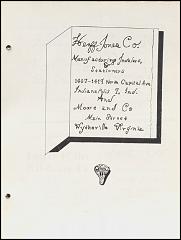 Herff Jones Co.
Manufacturing Jewelers,
Stationers
1407-1419 North Capital Ave
Indianapolis 7, Ind.
And
Moore and Co
Main Street
Wytheville Virginia